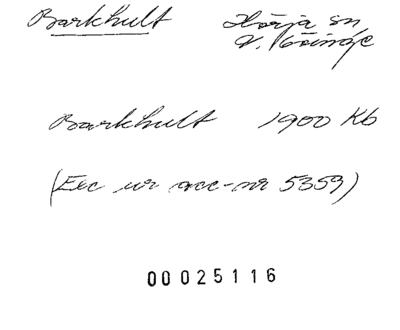 Barkhult Hörja sn
V. Göinge
Barkhult 1900 Kb
(Exc ur acc-nr 5353)
00025116